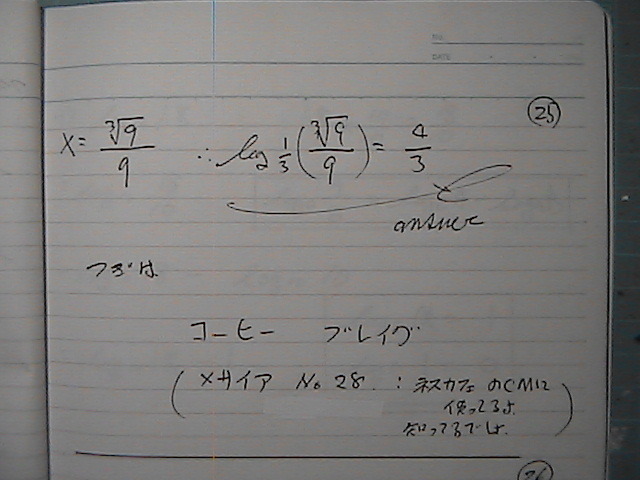 NO.
DATE
25
x = ∛9/9 ∴ log 1/3 (∛9/9) = 4/3
answer
つぎは
コーヒー ブレイク
(メサイア No 28 : ネスカフェのCMに
使ってるよ
知ってるでしょ)
26